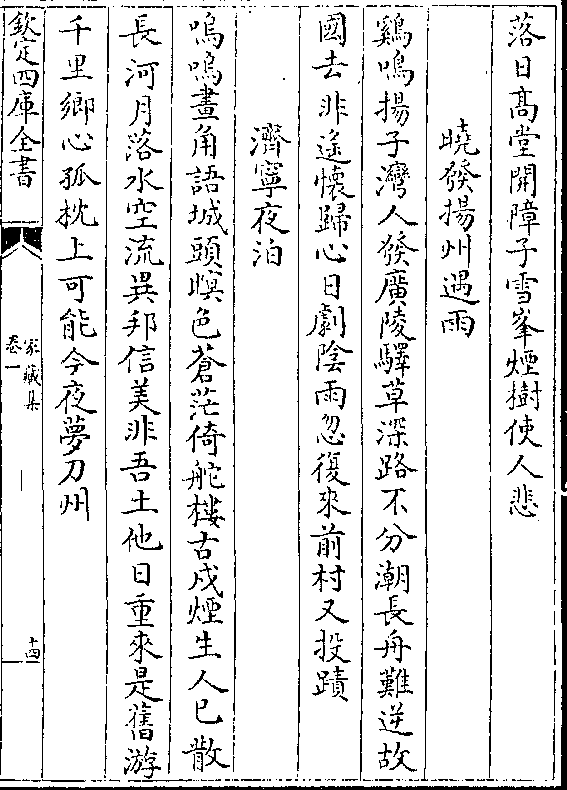 落日髙堂開障子雪峯煙樹使人悲
曉發揚州遇雨
鷄鳴揚子灣人發廣陵驛草深路不分潮長舟難逆故
國去非遙懷歸心日劇陰雨忽復來前村又投蹟
濟寧夜泊
嗚嗚畫角語城頭暝色蒼茫倚舵樓古戍煙生人已散
長河月落水空流異邦信美非吾土他日重來是舊游
千里鄉心孤枕上可能今夜夢刀州
欽定四庫全書
家藏集
卷一
十四